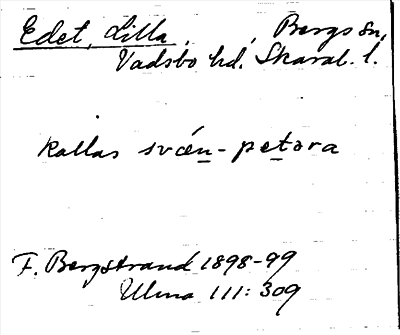 Edet, Lilla. , Bergs sn,
Vadsbo hd. Skarab. l.
Kallas svǽn-petəra
F. Bergstrand 1898-99
Ulma 111:309